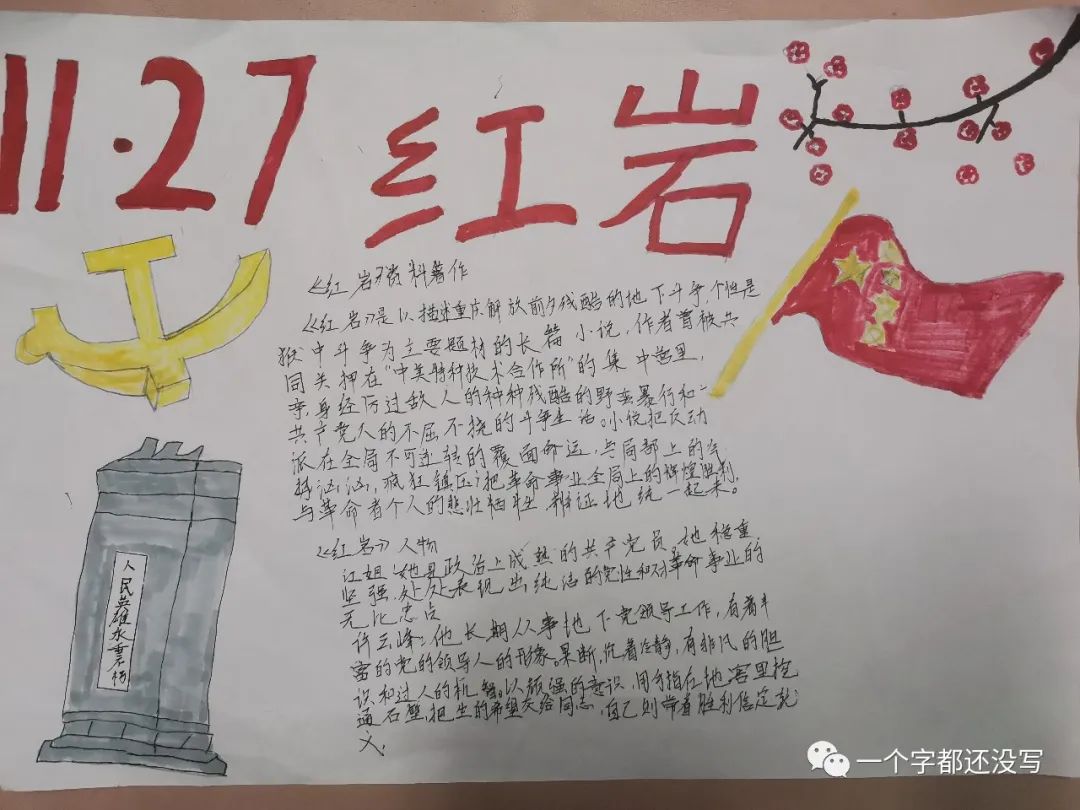 11·27 红岩
《红岩》资料著作
《红岩》是以描述重庆解放前夕残酷的地下斗争,个性是
狱中斗争为主要题材的长篇小说,作者曾被共
同关押在"中美特种技术合作所"的集中营里,
亲身经历过敌人的种种残酷的野蛮暴行和
共产党人的不屈不挠的斗争生活。小说把反动
派在全局不可逆转的覆面命运,与局部上的气
势汹汹,疯狂镇压;把革命事业全局上的辉煌胜利,
与革命者个人的悲壮牺牲,辩证地统一起来。
《红岩》人物
江姐:她是政治上成熟的共产党员,她稳重,
坚强,处处表现出纯洁的党性和对革命事业的
无比忠贞
许云峰:他长期从事地下党领导工作,有着丰
富的党的领导人的形象。果断,沉着冷静,有非凡的胆
识和过人的机智。以顽强的意识,用手指在地窖里挖
通石壁,把生的希望交给同志,自己则带着胜利信定就
义,
人民英雄永垂不朽
一个字都还没写